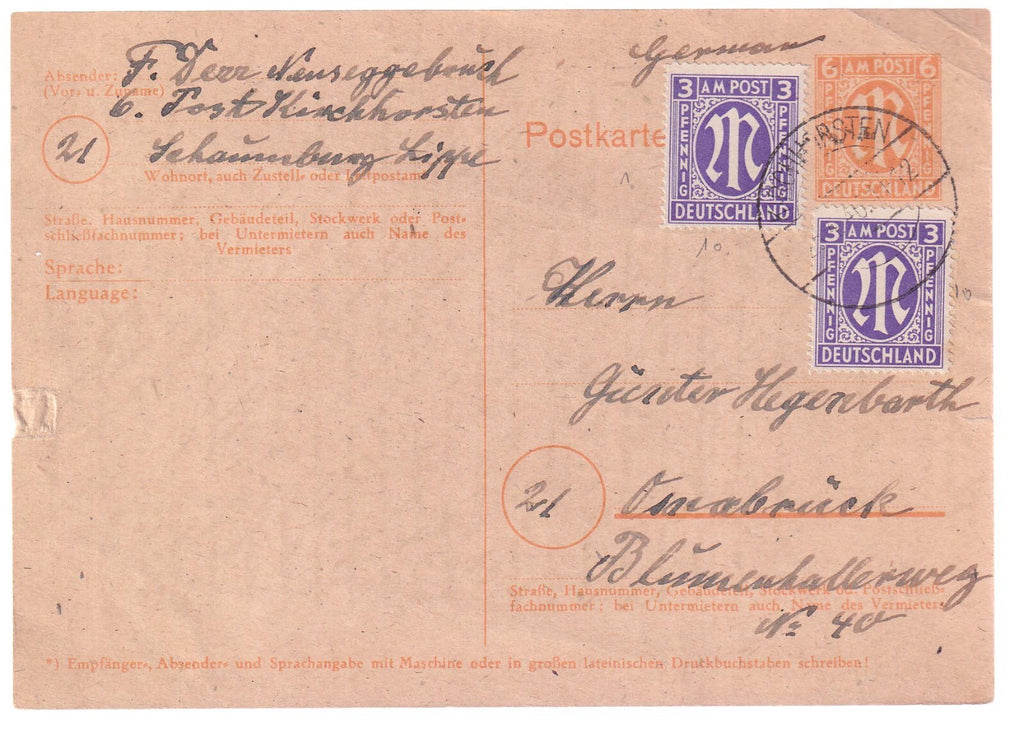 German
F. Derr Neuseggebruch
Absender:
(Vor- u. Zuname)
b. Post Kirchhorsten
21
Schaumburg Lippe
Wohnort, auch Zustell- oder Leitpostamt
Straße, Hausnummer, Gebäudeteil, Stockwerk oder Post-
schließfachnummer; bei Untermietern auch Name des
Vermieters
Sprache:
Language:
Postkarte
3 AM POST 3
PFENNIG PFENNIG
DEUTSCHLAND
6 AM POST 6
PFENNIG
DEUTSCHLAND
3 AM POST 3
PFENNIG PFENNIG
DEUTSCHLAND
10
Herrn
Günter Hegenbarth
21
Osnabrück
Blumenhallerweg
Straße, Hausnummer, Gebäudeteil, Stockwerk od. Postschließ-
fachnummer; bei Untermietern auch Name des Vermieters
№ 40
*) Empfänger-, Absender- und Sprachangabe mit Maschine oder in großen lateinischen Druckbuchstaben schreiben!